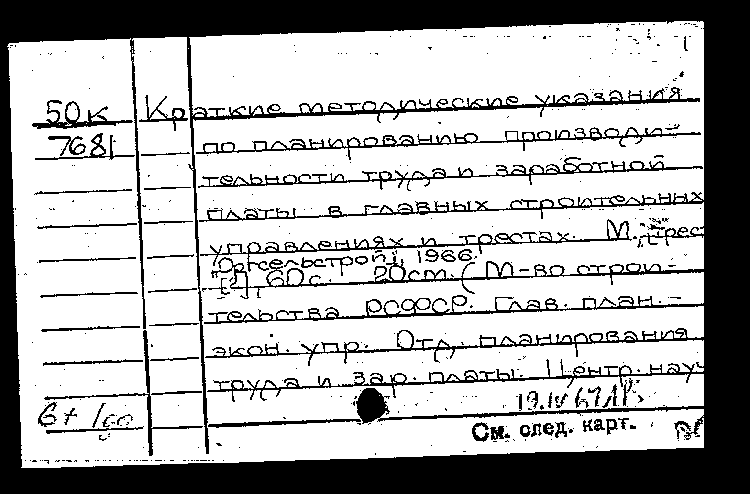 50к Краткие методические указания
7681 по планированию производи-
тельности труда и заработной
платы в главных строительных
управлениях и трестах. М., Трест
"Оргсельстрой", 1966.
60 с. 20 см. (М-во строи-
тельства РСФСР. Глав. план.-
экон. упр. Отд. планирования
труда и зар. платы. Центр. науч
19.IV 67
См. след. карт.